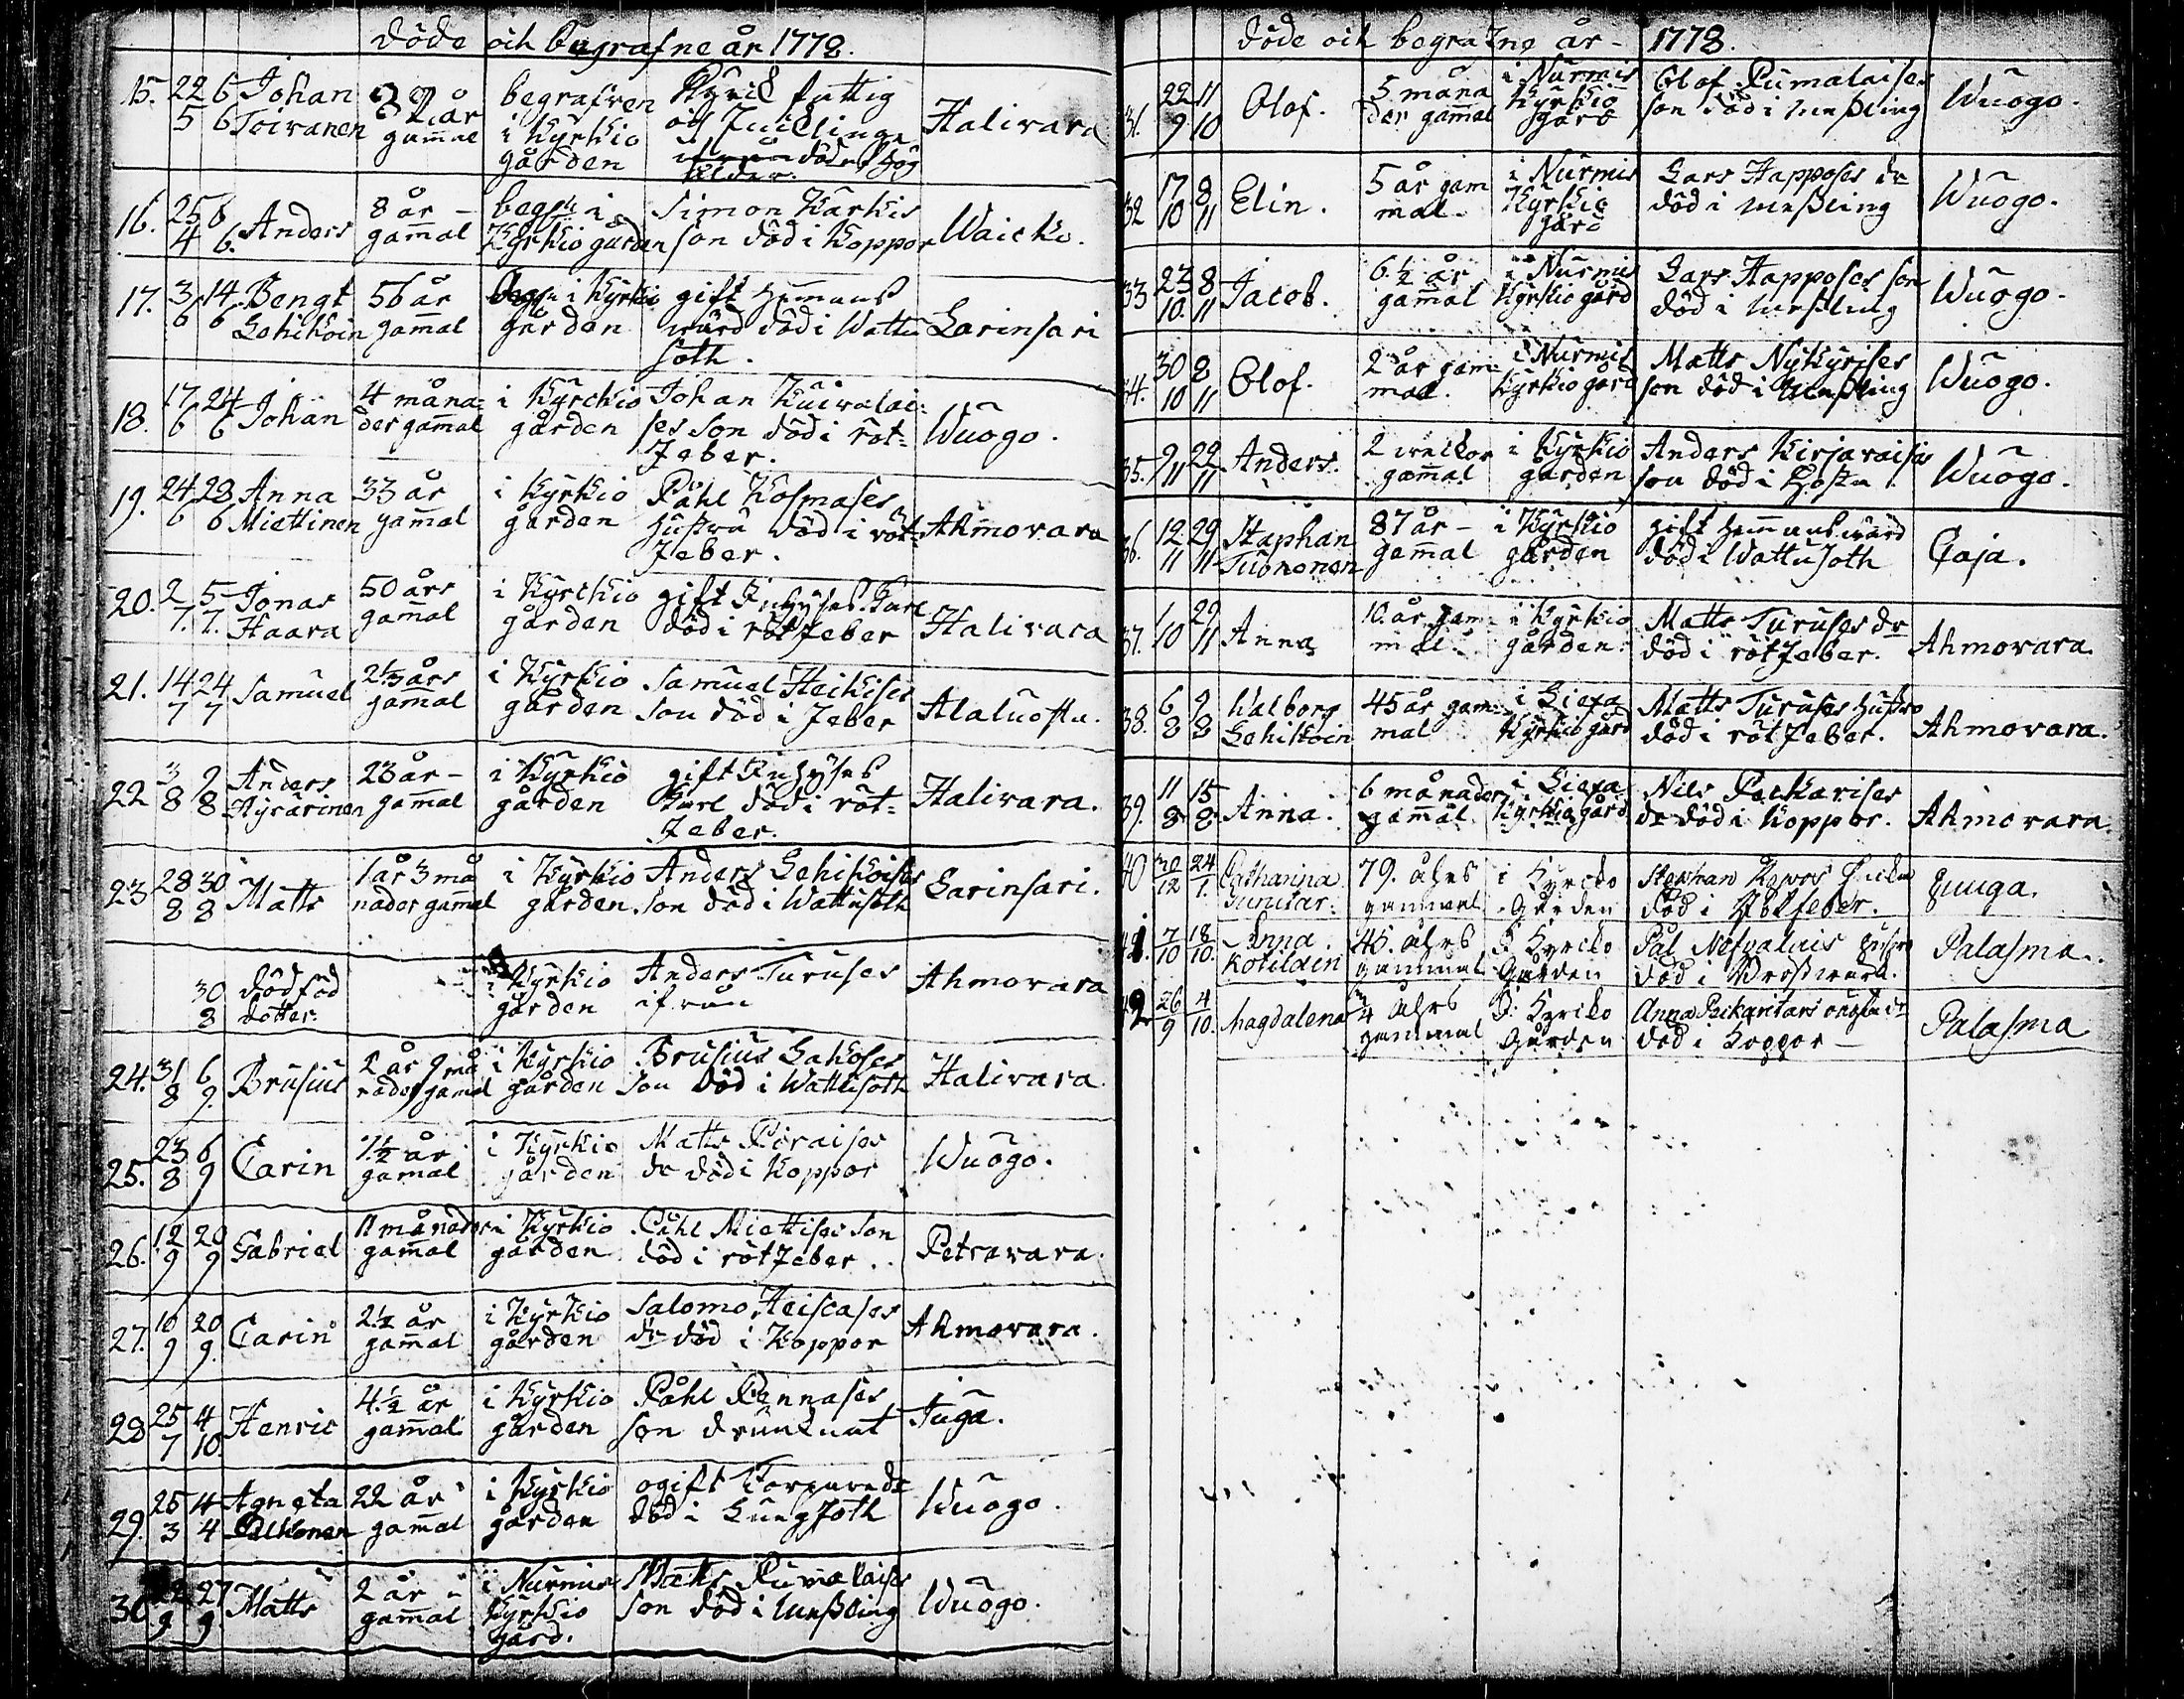 döde och begrafne år 1778.
15. 22/5 6/6 Johan Toivanen
82 år gammal
begrafven i Kyrkio gården
fattig
Halivara
16. 25/4 6/6. Anders
8 år gammal
begr: i Kyrkio gården
Simon Karkis son död i Koppor
Waicko.
17. 3/6 14/6 Bengt Lehikoin
56 år gammal
begr: i Kyrkio gården
gift Hemmans wärd död i Wattu soth.
Larinsari
18. 17/6 24/6 Johan
4 måna: der gammal
i Kyrckio gården
Johan Kuivalai: ses son död i röt: feber.
Wuogo.
19. 24/6 28/6 Anna Miettinen
33 år gammal
i Kyrkio gården
Påhl Kosmases hustru död i röt: feber.
Ahmovara
20. 2/7. 5/7. Jonas Haara
50 års gammal
i Kyrckio gården
gift Inhyses Karl död i röt feber
Halivara
21. 14/7 24/7 Samuel
2⅓ års gammal
i Kyrkio gården
Samuel Heikises son död i feber
Alaluosta.
22 3/8 9/8 Anders Hyvärinen
23 år – gammal
i Kyrkio gården
gift Inhyses Karl död i röt: feber.
Halivara.
23 28/8 30/8 Matts
1 år 3 må nader gammal
i Kyrkio gården.
Anders Lehikoises son död i Wattusoth
Larinsari.
30/8 död föd dotter.
i Kyrkio gården
Anders Turuses
Ahmovara
24. 31/8 6/9. Brusius
2 år 9 må nader gamal
i Kyrkio gården
Brusius Lakoses son död i Wattusoth
Halivara.
25. 23/8 6/9 Carin
7½ år gamal
i Kyrkio gården
Matts Piraises dr död i Koppor
Wuogo.
26. 12/9 20/9 Gabriel
11 månader gammal
i Kyrkio gården
Påhl Miettises son död i röt feber.
Petravara.
27. 10/9 20/9. Carin
2½ år gammal
i Kyrkio gården
Salomo Heiscases dr död i Koppor
Ahmovara.
28 25/7 4/10. Henric
4½ år gammal
i Kyrkio gården
Påhl Pennases son drunknat
Juga.
29. 25/3 4/4 Agneta Pelkonen
22 år gammal
i Kyrkio gården
ogift död i Lungsoth
Wuogo.
30. 22/9 27/9. Matts
2 år gammal
i Nurmis Kyrkio gård.
Matts Pumalaises son död i Messling
Wuogo.
döde och begrafne år – 1778.
31. 22/9 11/10 Olof.
5 måna der gammal
i Nurmis Kyrkio gård
Olof Pumalaises son död i messling
Wuogo.
32 17/10 8/11 Elin.
5 år gam mal.
i Nurmis Kyrkio gård
Lars Happoses dr död i messling
Wuogo.
33 23/10. 8/11 Jacob.
6.½ år gammal
i Nurmis Kyrkio gård
Lars Happoses son död i messling
Wuogo.
34. 30/10 8/11 Olof.
2 år gam: mal.
i Nurmis Kyrkio gård
Matts Nykyrises son död i Messling
Wuogo.
35. 9/11 29/11 Anders.
2 weckor gammal
i Kyrkio gården
Anders Kirjavaises son död i Hosta
Wuogo.
36. 12/11 29/11 Staphan Tuononen
87 år – gammal
i Kyrkio gården
gift Hemmans wärd död i Wattusoth
Caja.
37. 1/10 29/11 Anna
10. år gam: mal.
i Kyrkio gården.
Matts Turuses dr död i röt feber.
Ahmovara.
38. 6/8 9/8 Walborg Lehikoin
45 år gam: mal
i Liexa Kyrkio gård
Matts Turuses hustro död i röt feber.
Ahmovara.
39. 11/8 15/8 Anna.
6 månader gammal.
i Liexa Kyrkio gård
Nils Peckarises dr död i Koppor.
Ahmovara.
40 30/12 24/1. Catharina
79. åhrs gammal
i Kyrcko Gården
död i feber.
Juuga.
41. 7/10 18/10. Anna Kotilain
45. åhrs gammal
i Kyrcko Gården
Pål Nefvalais hustru död i
Palasma.
42 26/9 4/10. Magdalena
4 åhrs gammal
i Kyrcko Gården
Anna Peckaritars död i Koppor –
Palasma